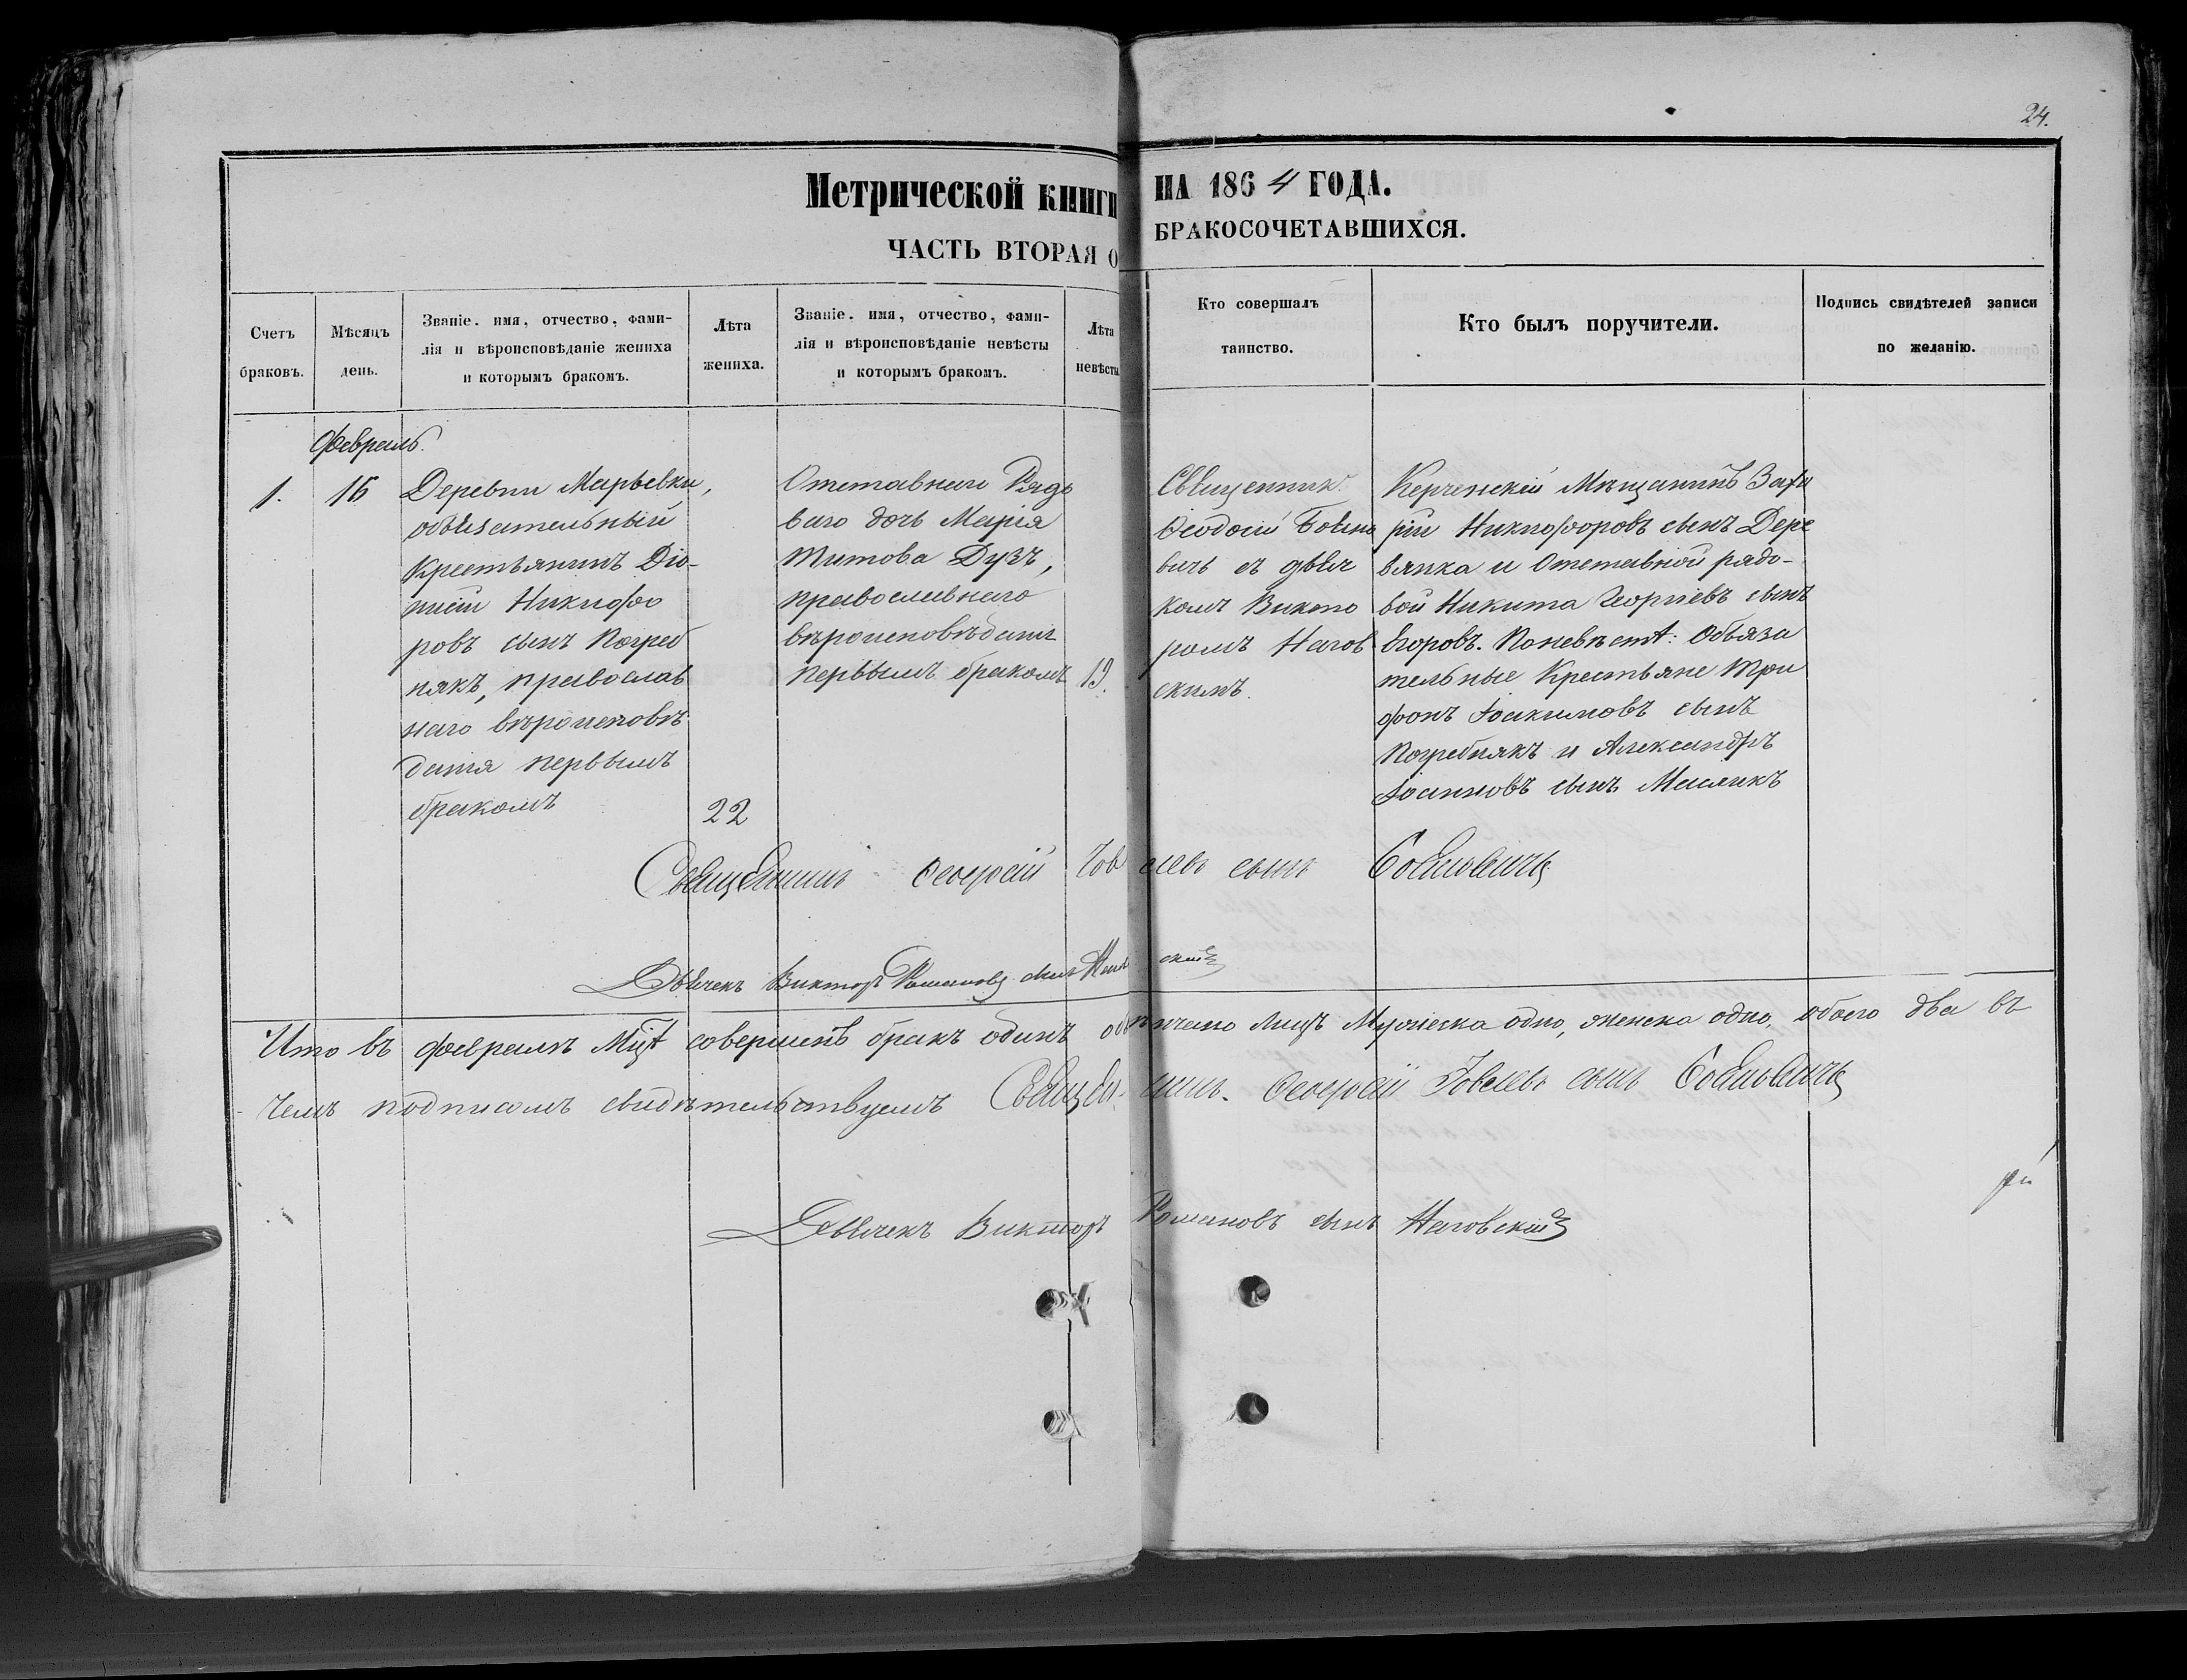 24.
Метрической книги на 1864 года.
Часть вторая о бракосочетавшихся.
Счетъ браковъ.
Мѣсяцъ день.
Званіе, имя, отчество, фами-
лія и вѣроисповѣданіе жениха
и которымъ бракомъ.
Лѣта жениха.
Званіе, имя, отчество, фами-
лія и вѣроисповѣданіе невѣсты
и которымъ бракомъ.
Лѣта невѣсты
Кто совершалъ
таинство.
Кто былъ поручители.
Подпись свидѣтелей записи
по желанію.
Февраль.
1.
16
Деревни Марьевки,
обязательный
Крестьянинъ Діо-
нисій Никифо
ровъ сынъ Погреб
някъ, православ
наго вѣроисповѣ
данія первымъ
бракомъ
22
Отставнаго Рядо
ваго дочь Марія
Титова Дузъ,
православнаго
вѣроисповѣданія
первымъ бракомъ
19.
Священникъ
Ѳеодосій
вичь съ дьяч
комъ Викто
ромъ Нагов
скимъ.
Керченскій Мѣщанинъ Заха
рій Никифоровъ сынъ Дере
вянка и Отставной рядо-
вой Никита Георгіевъ сынъ
Егоровъ. По невѣстѣ: Обяза
тельные Крестьяне Три
фонъ Іоакимовъ сынъ
Погребнякъ и Александръ
Іоанновъ сынъ Маслякъ
Священникъ Ѳеодосій Іовлевъ сынъ
Дьячекъ Викторъ Романовъ сынъ Наговскій
Что въ февралѣ Мцѣ совершенъ бракъ одинъ обвѣнчано лицъ Мужеска одно, женска одно, обоего два въ
чемъ подписомъ свидѣтельствуемъ Священникъ. Ѳеодосій Іовлевъ сынъ
Дьячекъ Викторъ Романовъ сынъ Наговскій
рій